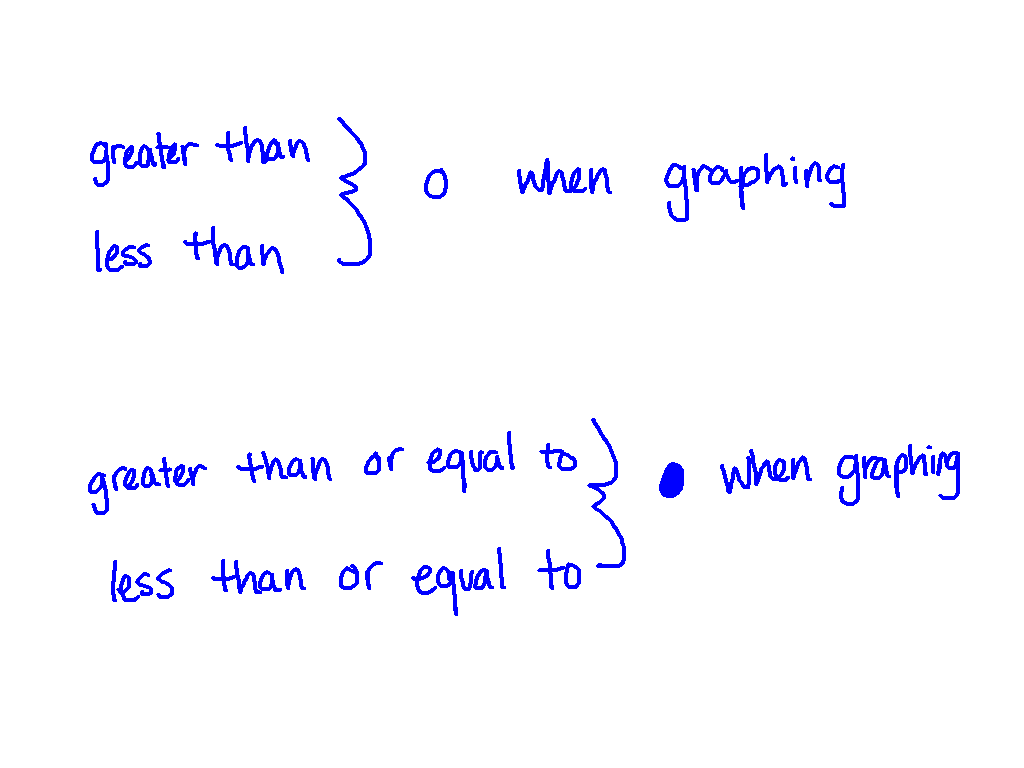 greater than
less than
o when graphing
greater than or equal to
less than or equal to
when graphing